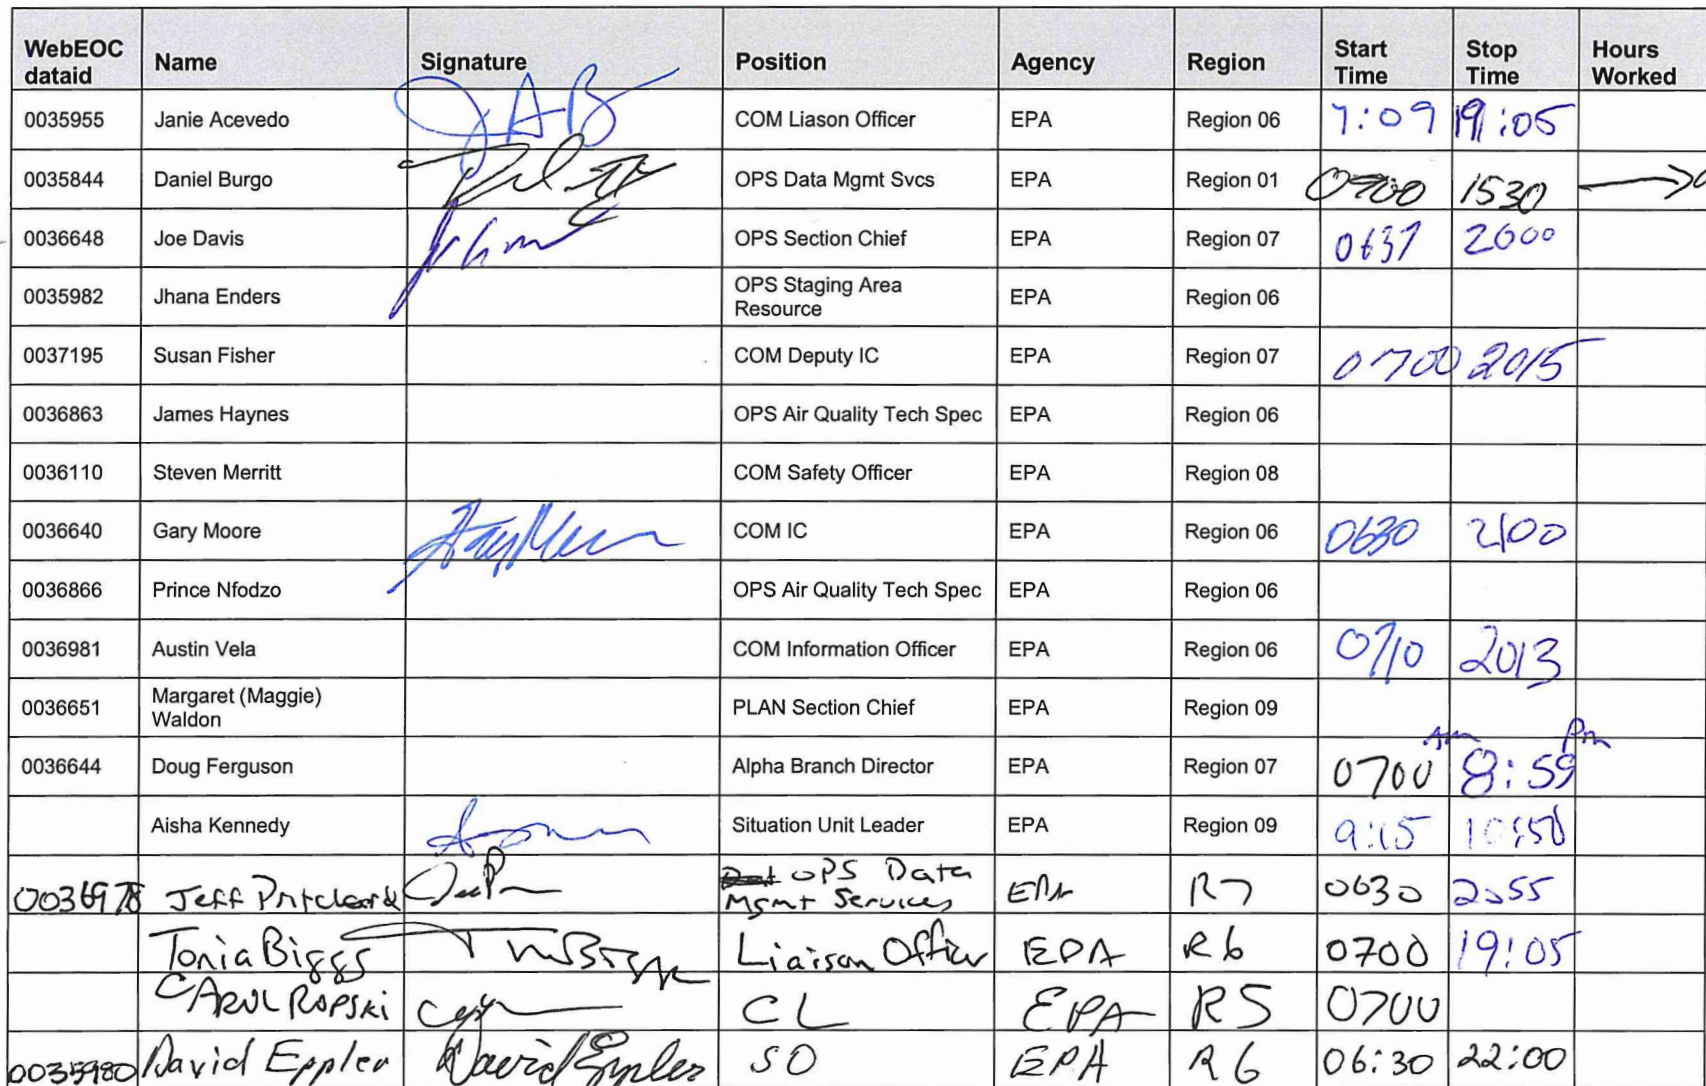 WebEOC dataid Name Signature Position Agency Region Start Time Stop Time Hours Worked
0035955 Janie Acevedo JAB COM Liason Officer EPA Region 06 7:09 19:05
0035844 Daniel Burgo OPS Data Mgmt Svcs EPA Region 01 0700 1530
0036648 Joe Davis OPS Section Chief EPA Region 07 0637 2000
0035982 Jhana Enders OPS Staging Area Resource EPA Region 06
0037195 Susan Fisher COM Deputy IC EPA Region 07 0700 2015
0036863 James Haynes OPS Air Quality Tech Spec EPA Region 06
0036110 Steven Merritt COM Safety Officer EPA Region 08
0036640 Gary Moore COM IC EPA Region 06 0630 2100
0036866 Prince Nfodzo OPS Air Quality Tech Spec EPA Region 06
0036981 Austin Vela COM Information Officer EPA Region 06 0710 2013
0036651 Margaret (Maggie) Waldon PLAN Section Chief EPA Region 09
0036644 Doug Ferguson Alpha Branch Director EPA Region 07 0700 Am 8:59 Pm
Aisha Kennedy Situation Unit Leader EPA Region 09 9:15
0036978 Jeff Pritchard OPS Data Mgmt Services EPA R7 0630 2055
Tonia Biggs Liaison Officer EPA R6 0700 19:05
CAROL ROPSKI CL EPA R5 0700
0035980 David Eppler David Eppler SO EPA R6 06:30 22:00